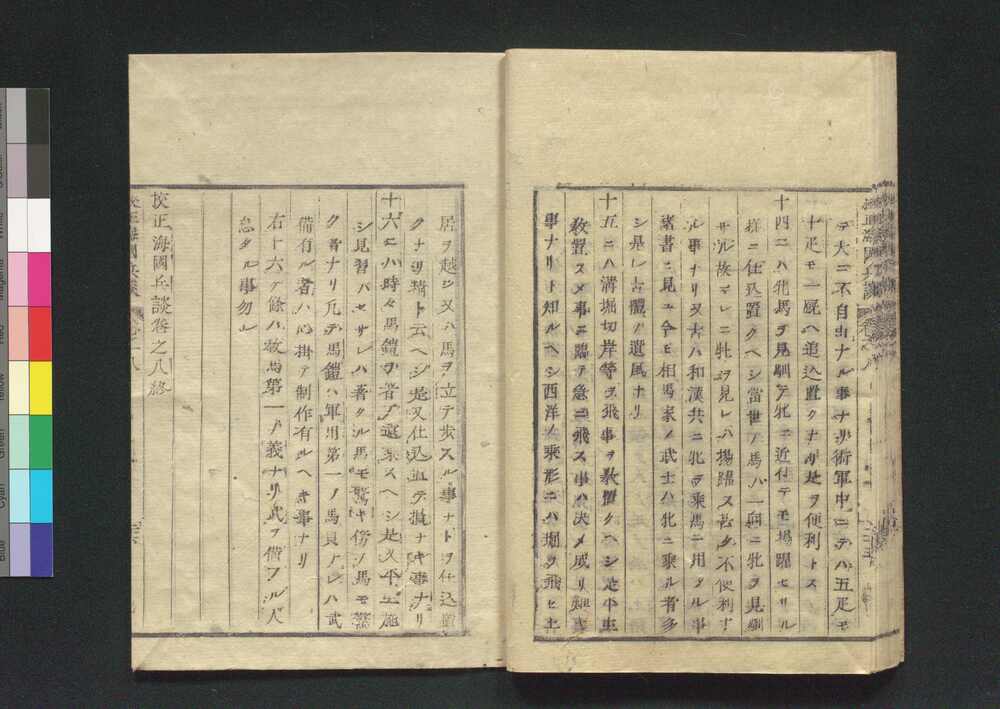 テ大ニ不自由ナル事ナリ術軍中ニテハ五疋モ
十疋モ一厩ヘ追込置クナリ是ヲ便利トス
十四ニハ牝馬ヲ見馴テ牝ニ近付テモ揚躍セサル
様ニ仕込置クヘシ當世ノ馬ハ一向ニ牝ヲ見馴
サル故マレニ牝ヲ見レハ揚躍ス甚タ不便利ナ
ル事ナリ又大ハ和漢共ニ牝ヲ乘馬ニ用タル事
諸書ニ見ユ今モ相馬家ノ武士ハ牝ニ乘ル者多
シ是レ古體ノ遺風ナリ
十五ニハ溝堀切岸等ヲ飛事ヲ教置クヘシ是平生
教置スメ事ニ臨テ急ニ飛ス事ハ決メ成リ難
事ナリト知ルヘシ西洋ノ乘形ニハ堀ヲ飛ヒ土
居ヲ越シ又ハ馬ヲ立テ歩スル事ナトヲ仕込置
クナリ精ト云ヘシ是又仕込置テ損ナキ事ナリ
十六ニハ時々馬鎧ヲ著テ遠乘スヘシ是又平生
シ見習ハセサレハ著タル馬モ驚キ傍ノ馬モ驚
ク者ナリ凡テ馬鎧ハ軍用第一ノ馬具ナレハ武
備有ル者ハ心掛テ制作有ルヘキ事ナリ
右十六ケ餘ハ牧馬第一ノ義ナリ武ヲ備フル人
怠タル事勿レ
校正海國兵談卷之八終